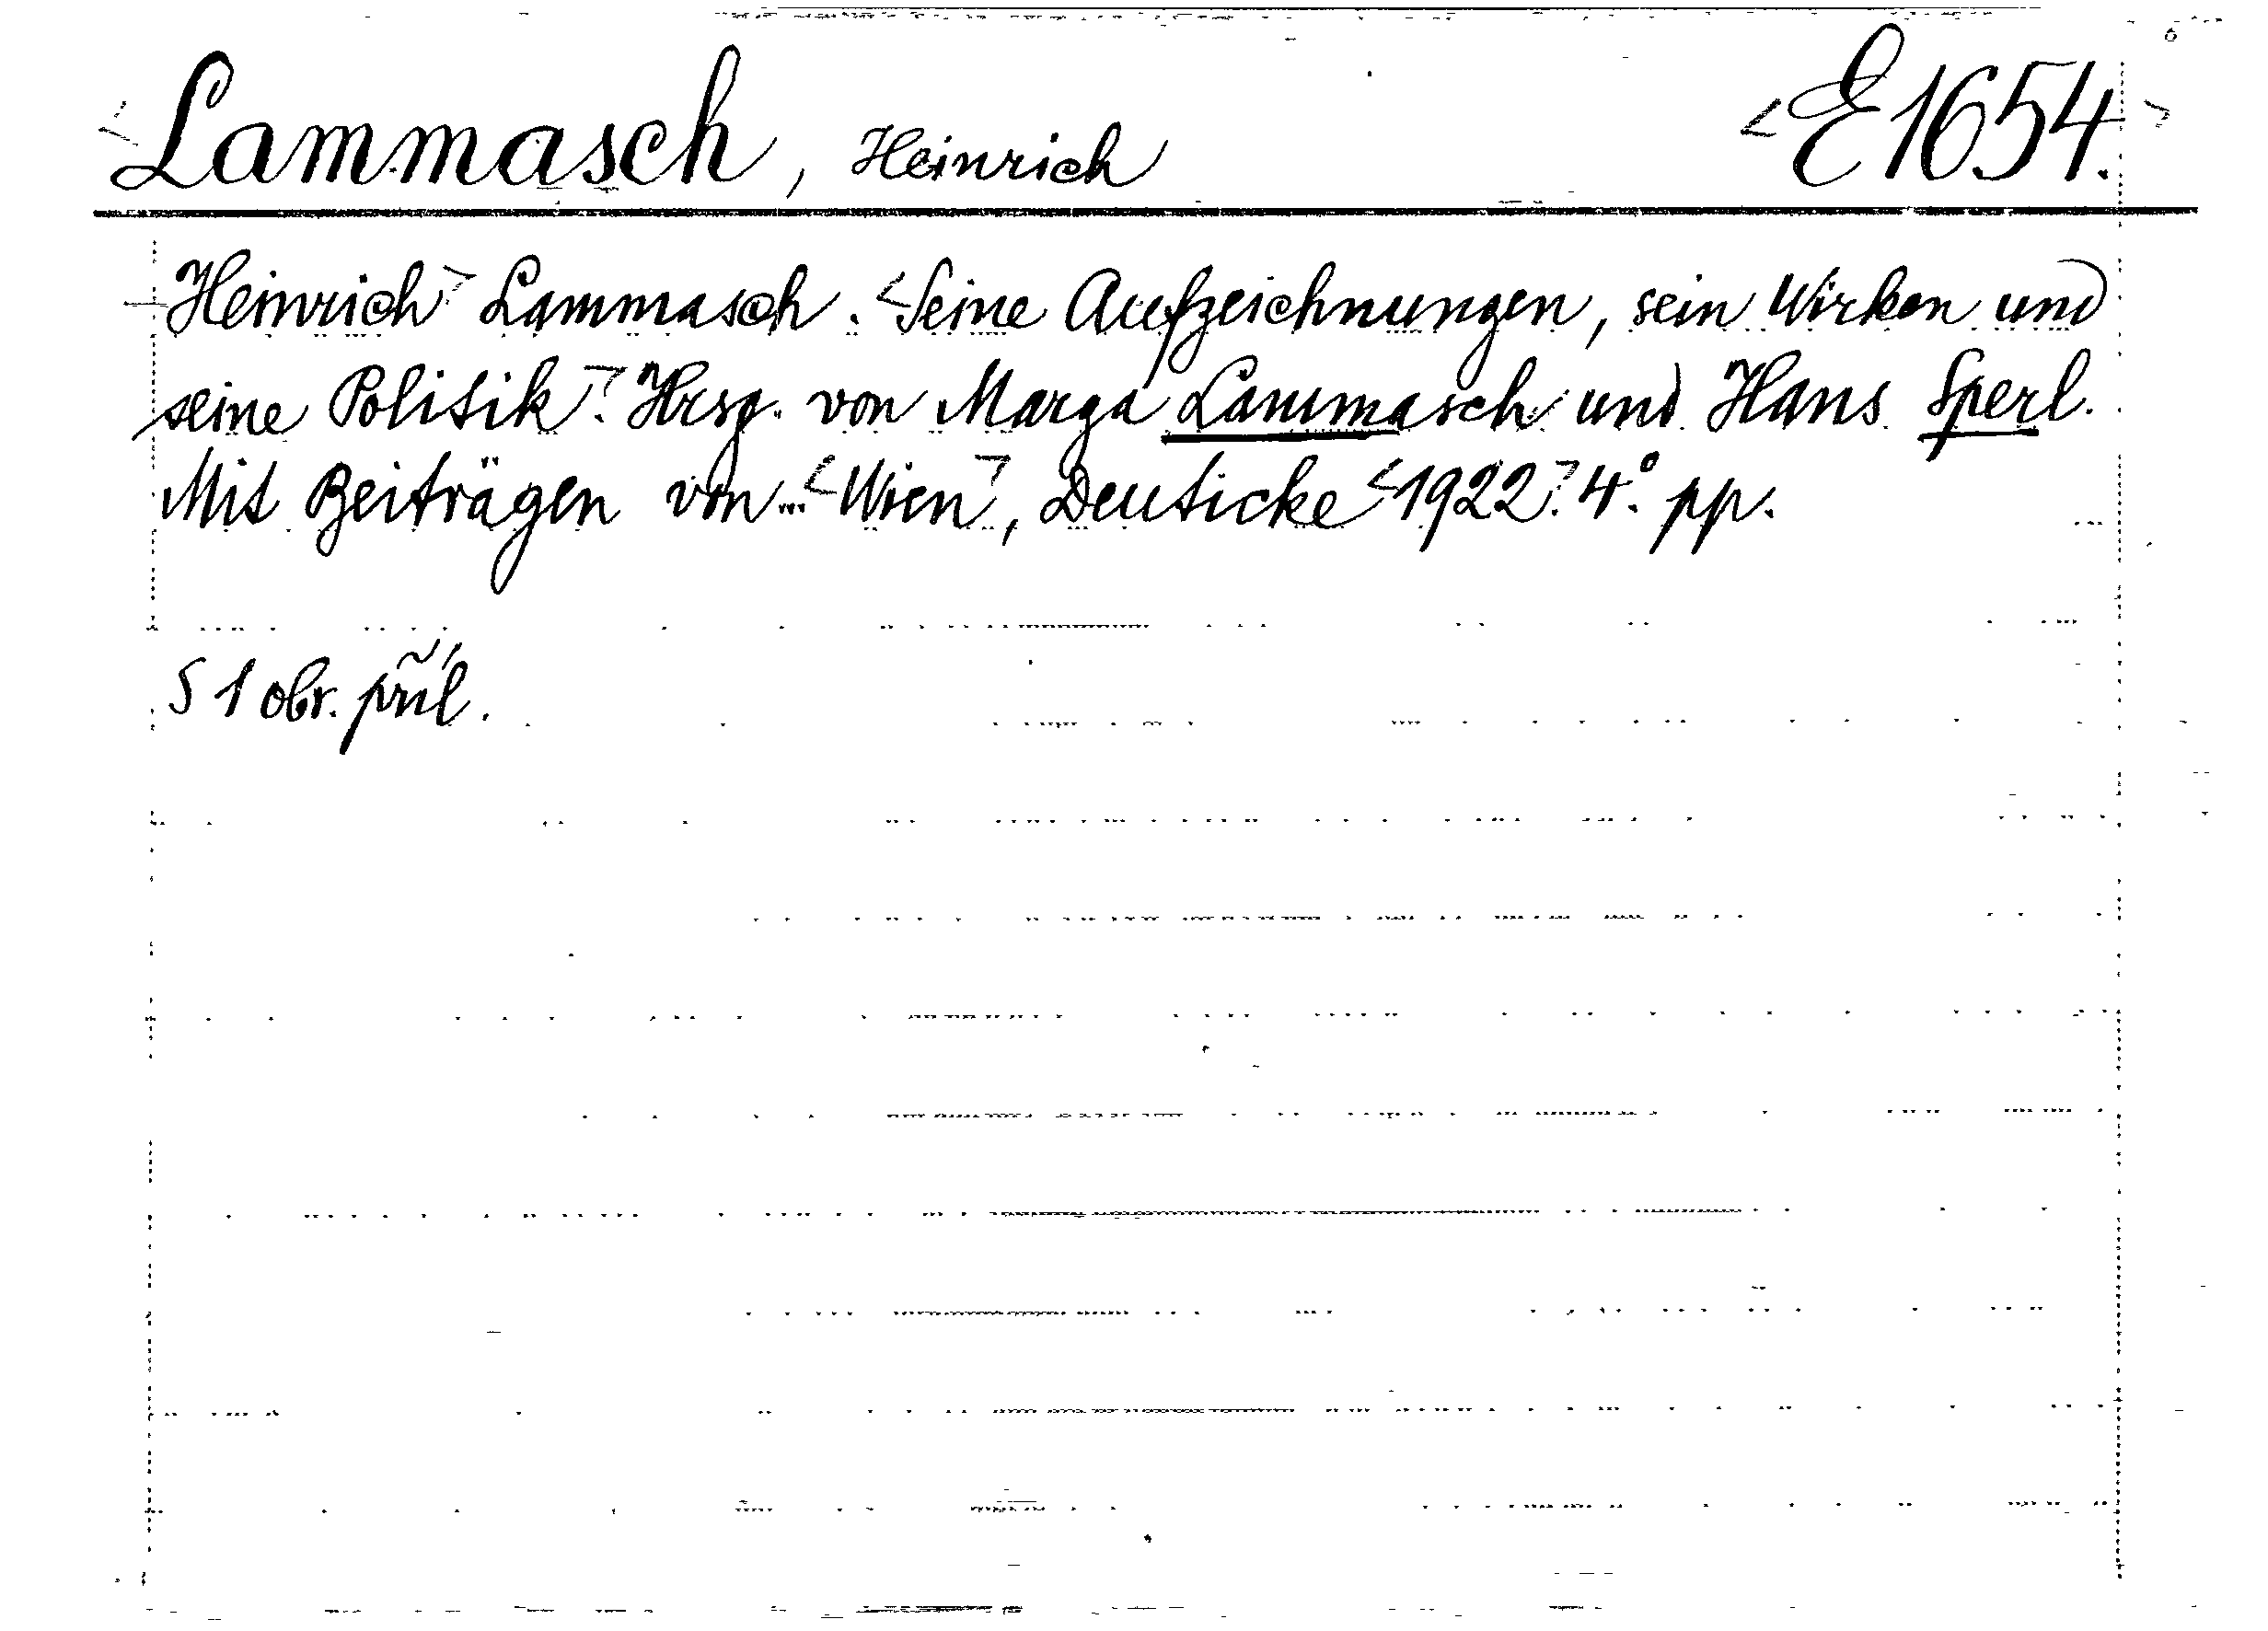 Lammasch, Heinrich <E1654.>
<Heinrich> Lammasch. <Seine Aufzeichnungen, sein Wirken und
seine Politik>. Hrsg. von Marga Lammasch und Hans Sperl.
Mit Beiträgen von... <Wien>, Deuticke <1922>. 4°. pp.
S 1 obr. příl.